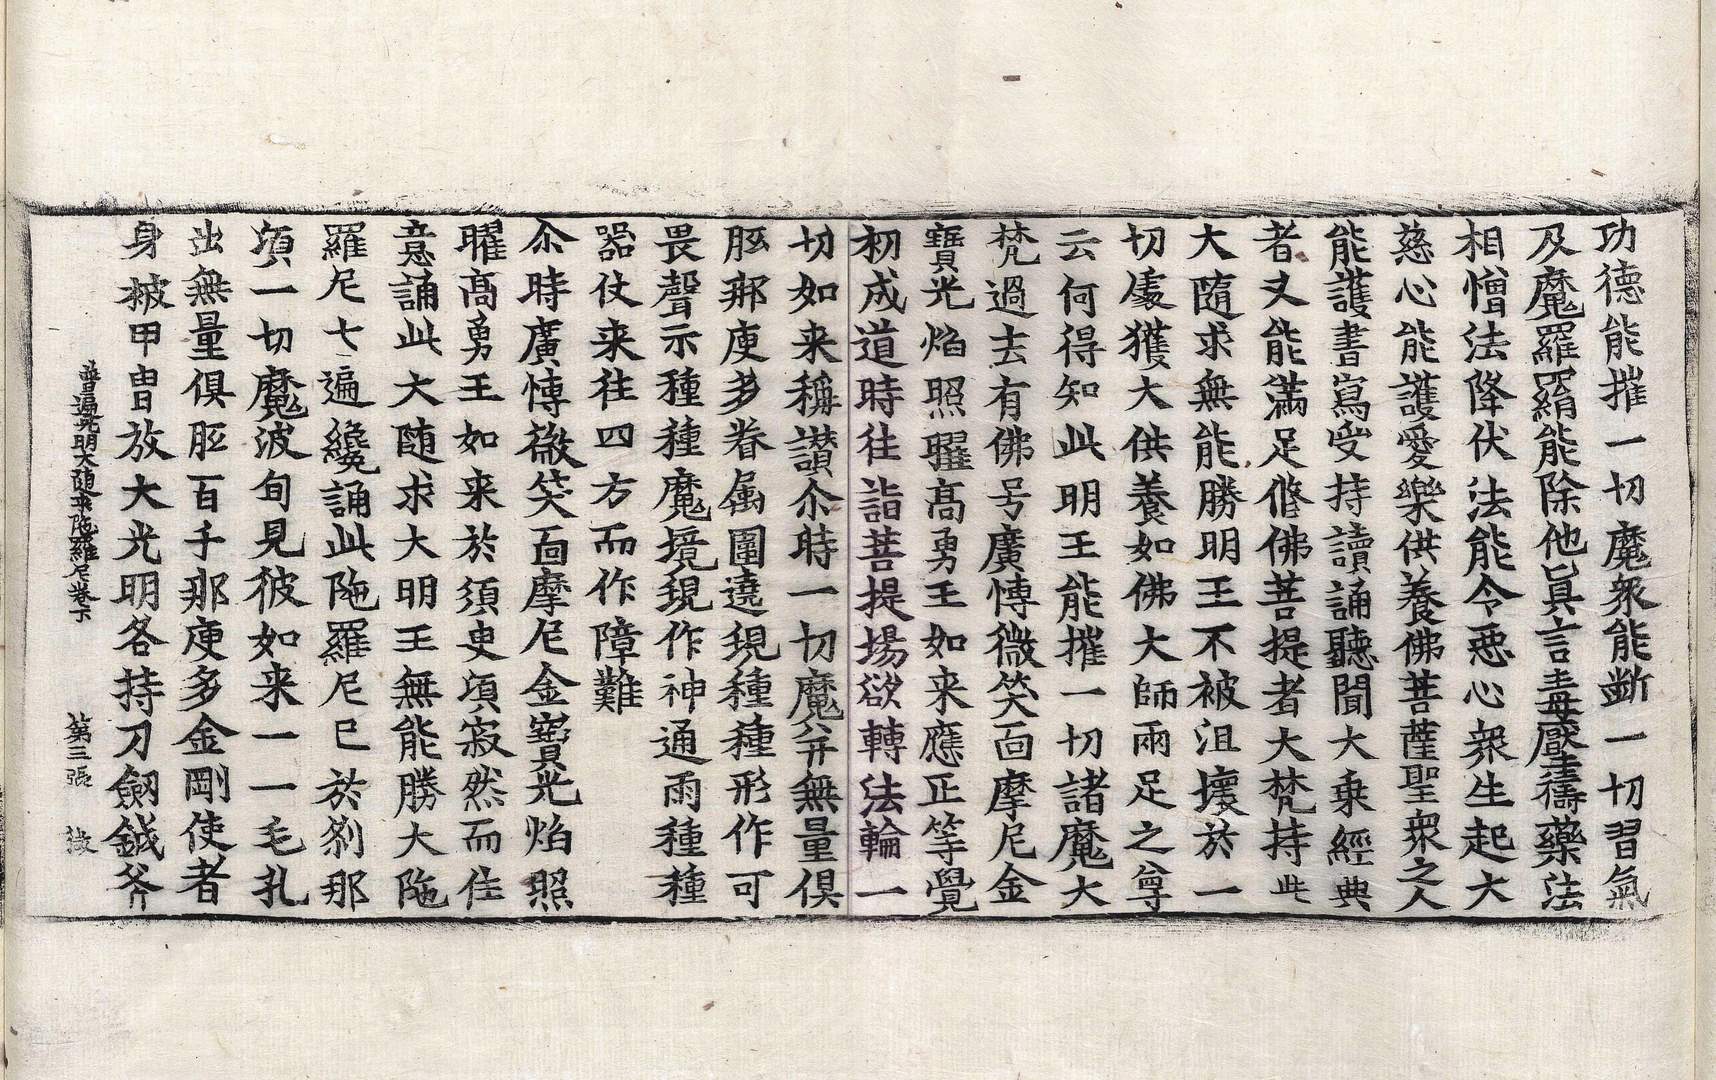 功德能摧一切魔衆能斷一切習氣
及魔羅羂能除他眞言毒壓禱藥法
相憎法降伏法能令惡心衆生起大
慈心能護愛樂供養佛菩薩聖衆之人
能護書寫受持讀誦聽聞大乗經典
者又能滿足修佛菩提者大梵持此
大隨求無能勝明王不被沮壞於一
切處獲大供養如佛大師兩足之尊
云何得知此明王能摧一切諸魔大
梵過去有佛号廣愽微笑面摩尼金
寶光焰照曜髙勇王如来應正等覺
初成道時往詣菩提場欲轉法輪一
切如来稱讃尒時一切魔幷無量俱
胝那庾多眷属圍遶現種種形作可
畏聲示種種魔境現作神通雨種種
器仗来往四方而作障難
尒時廣愽微笑面摩尼金寶光焰照
曜髙勇王如来於須臾頃寂然而住
意誦此大随求大明王無能勝大陁
羅尼七遍纔誦此陁羅尼已於刹那
頃一切魔波旬見彼如来一一毛孔
出無量俱胝百千那庾多金剛使者
身披甲冑放大光明各持刀劔鉞斧
普遍光明大随求陁羅尼卷下 第三張